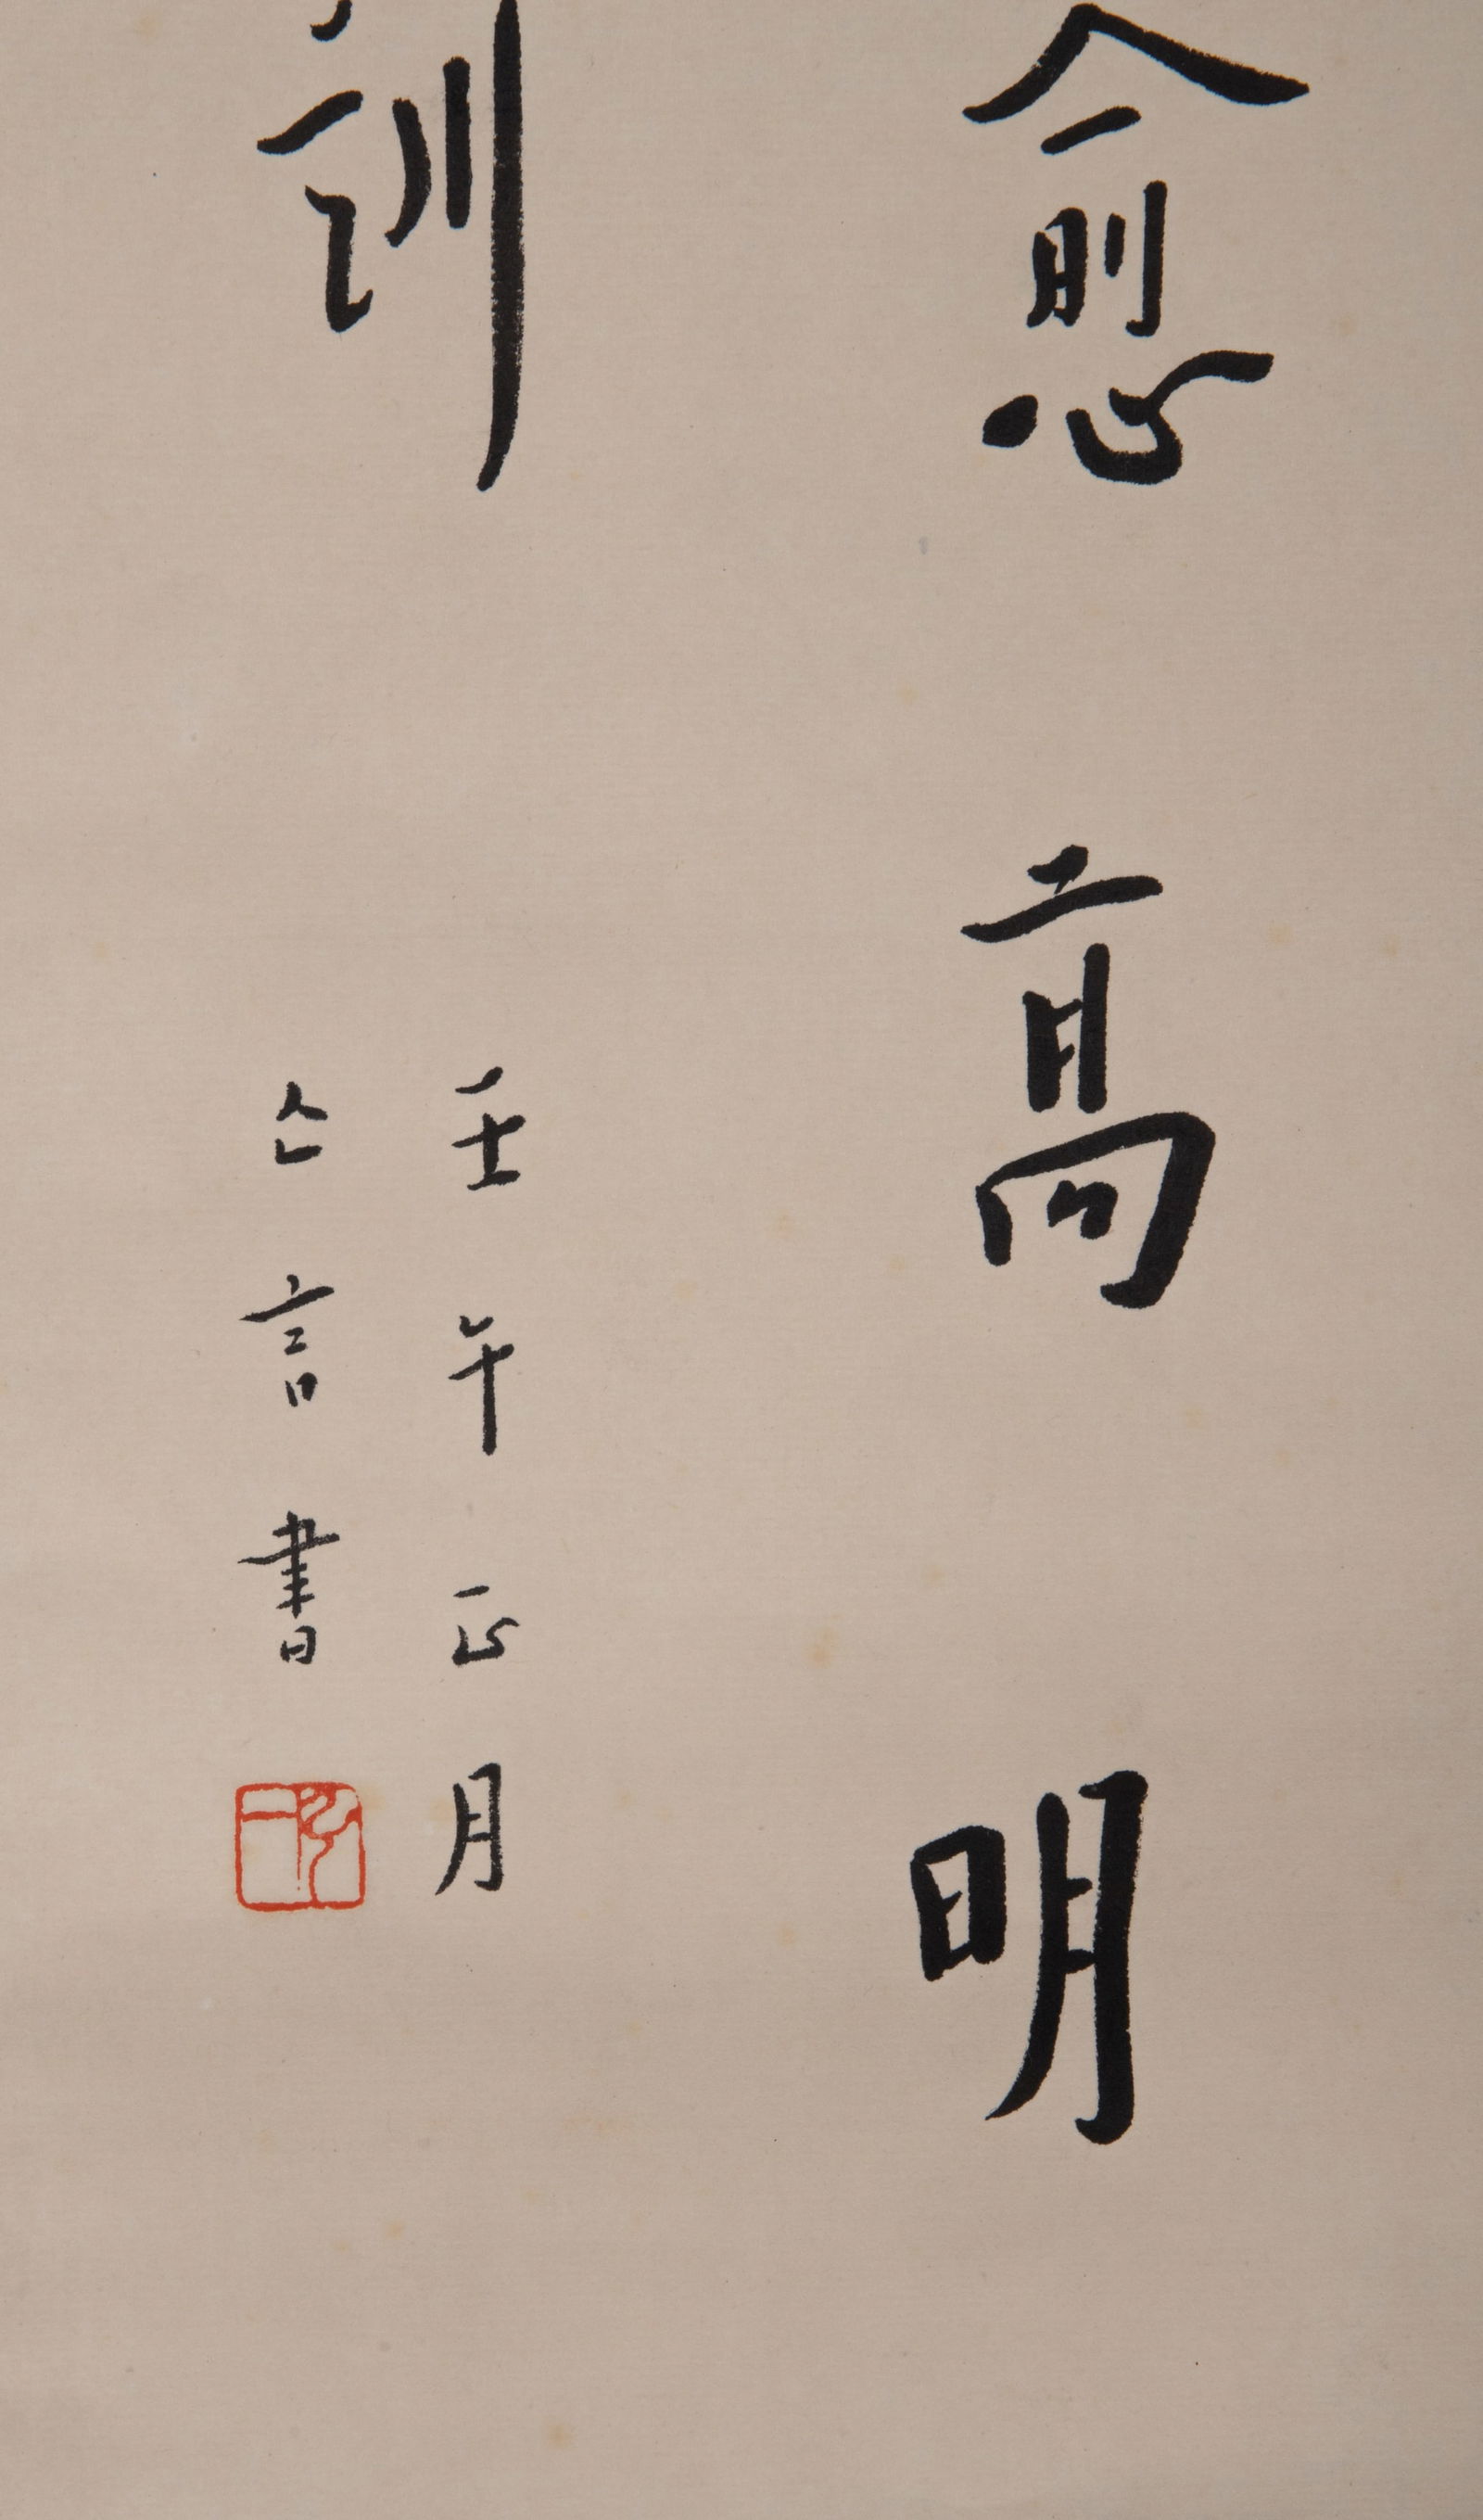 愈高明
訓
壬午正月
亼言書